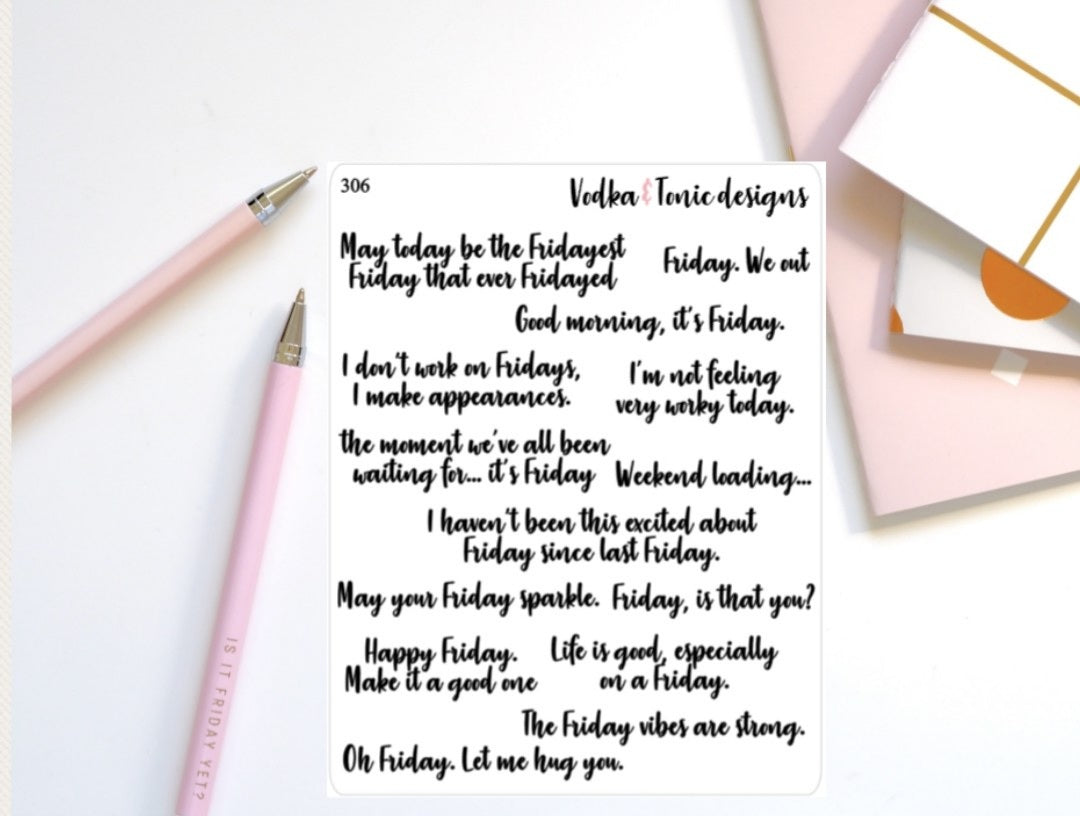 306
Vodka & Tonic designs
May today be the Fridayest
Friday that ever Fridayed
Friday. We out
Good morning, it's Friday.
I don't work on Fridays,
I make appearances.
I'm not feeling
very worky today.
the moment we've all been
waiting for... it's Friday
Weekend loading...
I haven't been this excited about
Friday since last Friday.
May your Friday sparkle.
Friday, is that you?
Happy Friday.
Make it a good one
Life is good, especially
on a Friday.
The Friday vibes are strong.
Oh Friday. Let me hug you.
IS IT FRIDAY YET?